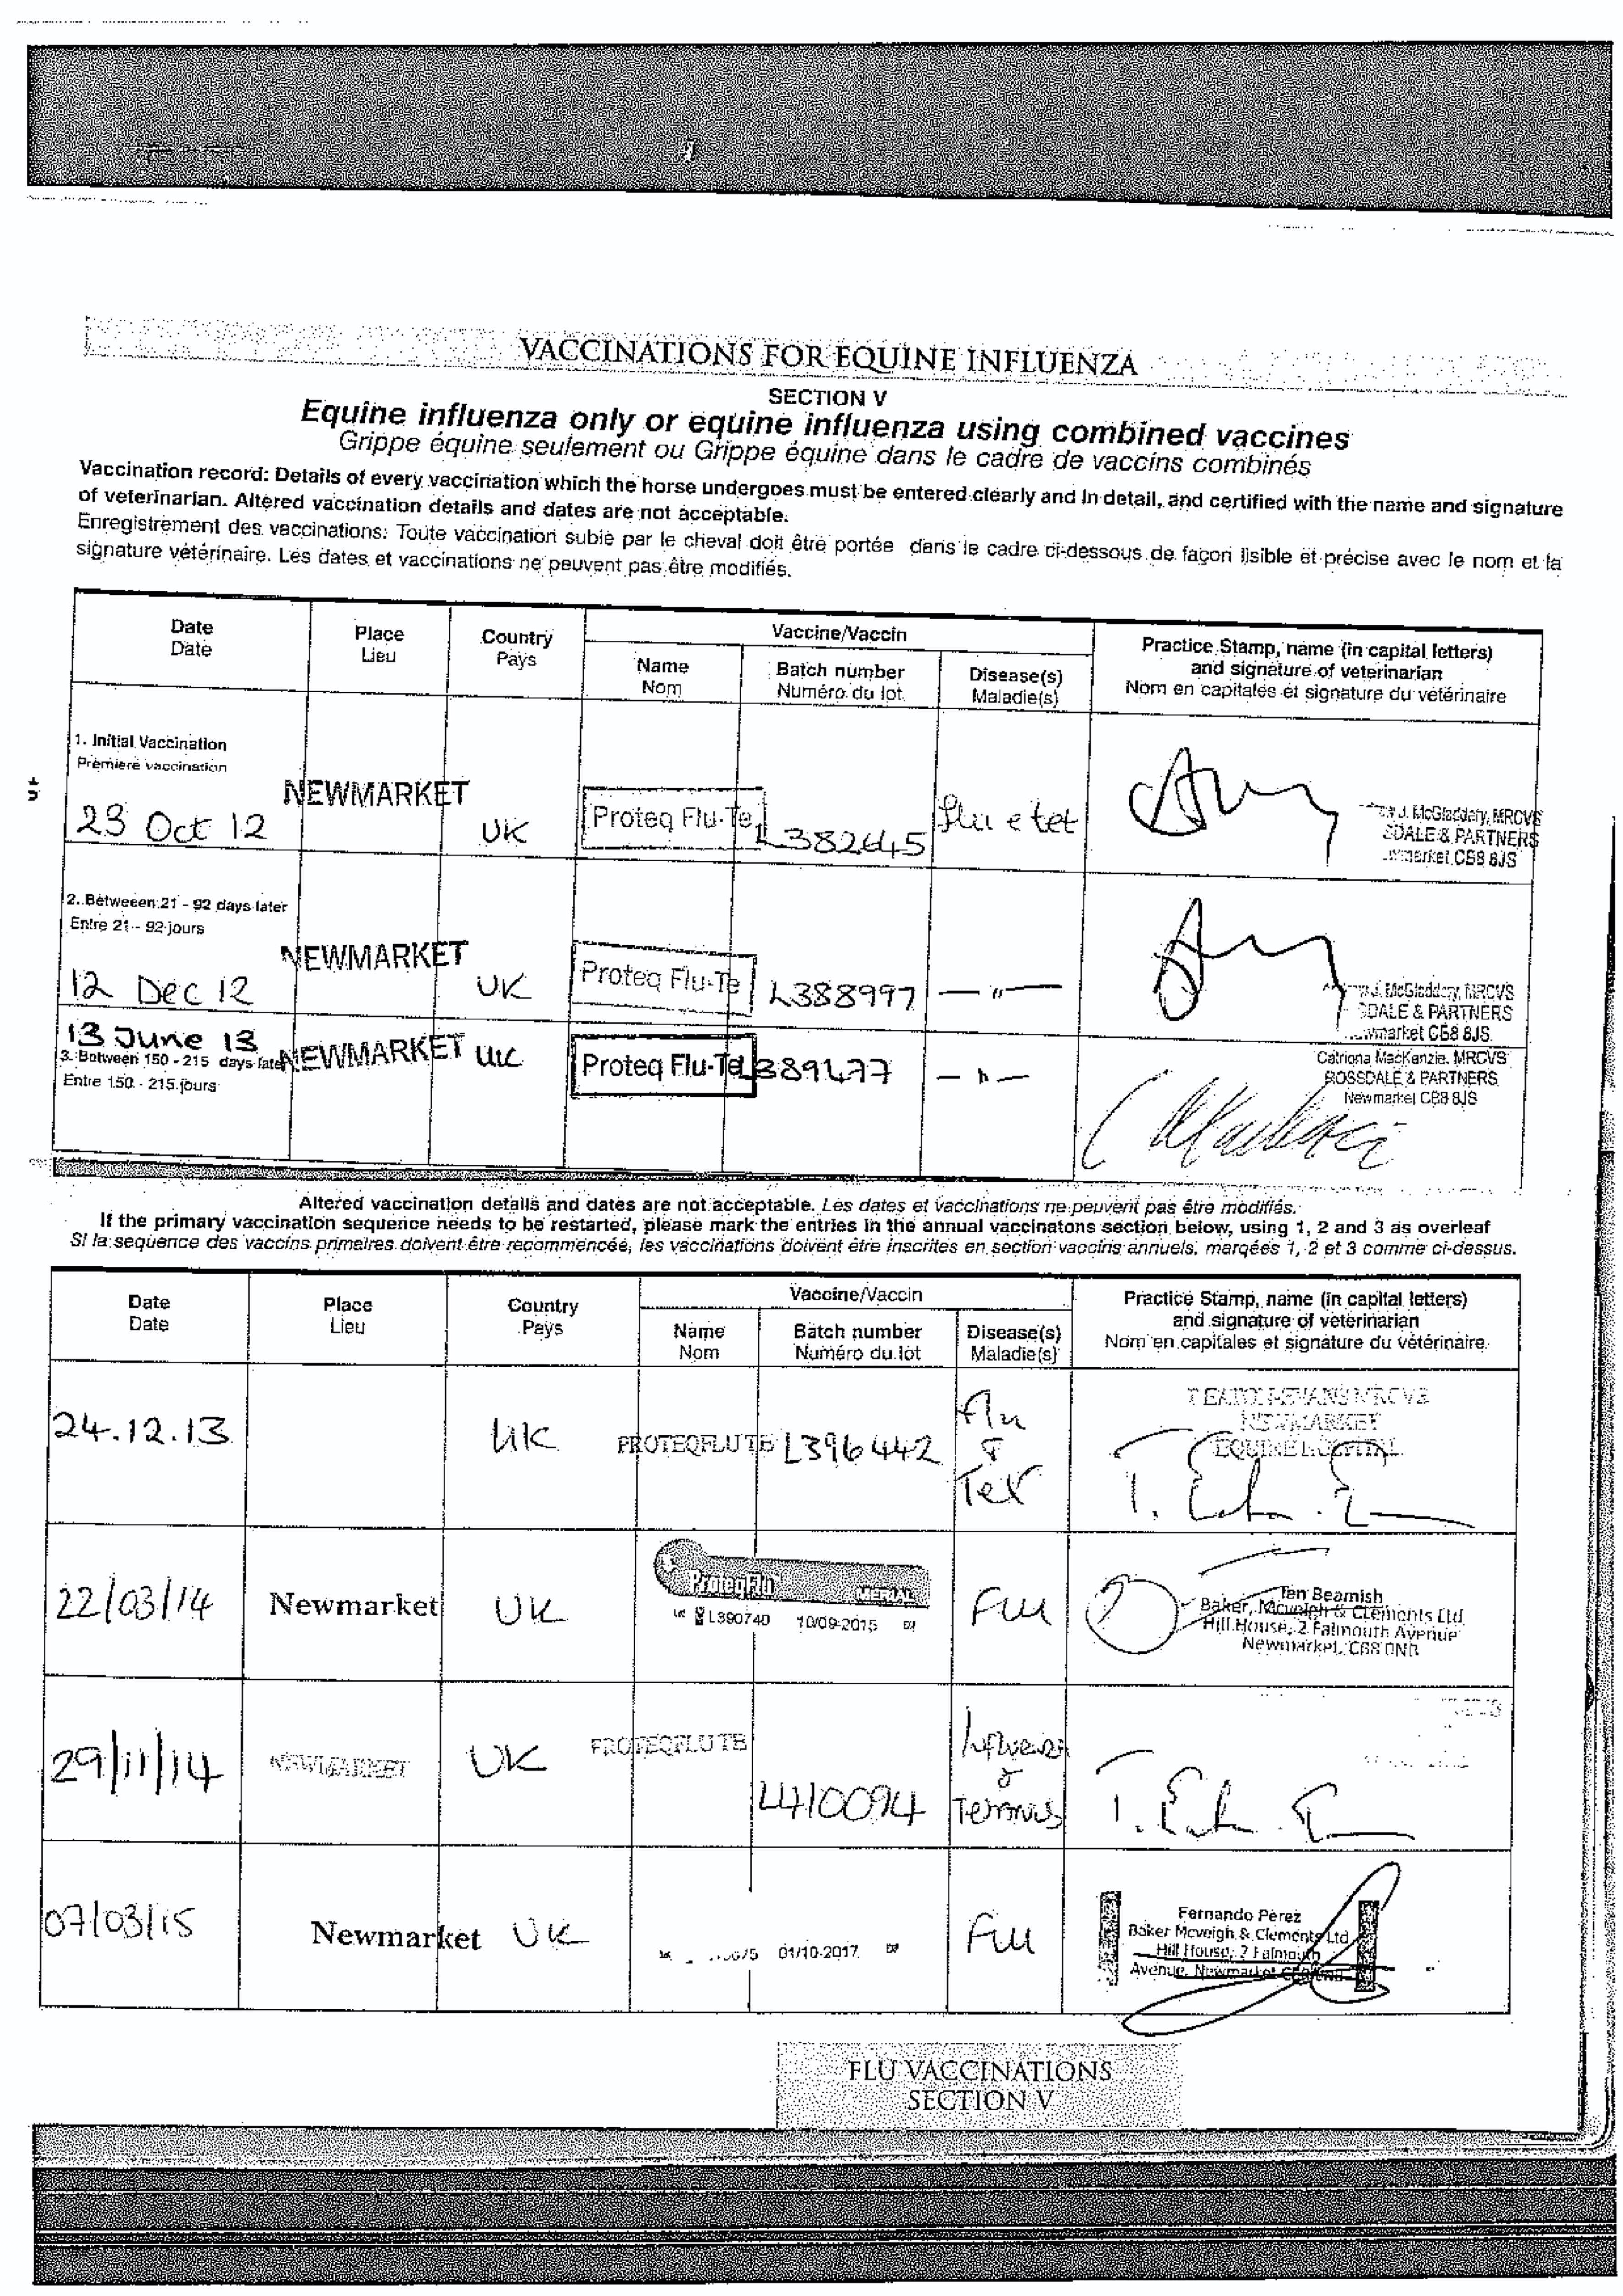 VACCINATIONS FOR EQUINE INFLUENZA
SECTION V
Equine influenza only or equine influenza using combined vaccines
Grippe équine seulement ou Grippe équine dans le cadre de vaccins combinés
Vaccination record: Details of every vaccination which the horse undergoes must be entered clearly and in detail, and certified with the name and signature
of veterinarian. Altered vaccination details and dates are not acceptable.
Enregistrement des vaccinations: Toute vaccination subie par le cheval doit être portée dans le cadre ci-dessous de façon lisible et précise avec le nom et la
signature vétérinaire. Les dates et vaccinations ne peuvent pas être modifiés.
Date
Date
Place
Lieu
Country
Pays
Vaccine/Vaccin
Name
Nom
Batch number
Numéro du lot
Disease(s)
Maladie(s)
Practice Stamp, name (in capital letters)
and signature of veterinarian
Nom en capitales et signature du vétérinaire
1. Initial Vaccination
Premiere vaccination
23 Oct 12
NEWMARKET
UK
Proteq Flu-Te
L382645
flu e tet
J. McGladdery, MRCVS
SDALE & PARTNERS
CB8 8JS
2. Betweeen 21 - 92 days later
Entre 21 - 92 jours
12 Dec 12
NEWMARKET
UK
Proteq Flu-Te
L388997
— " —
J. McGladdery, MRCVS
SDALE & PARTNERS
wmarket CB8 8JS
13 June 13
3. Between 150 - 215 days later
Entre 150 - 215 jours
NEWMARKET
UK
Proteq Flu-Te
L389477
— " —
Catriona MacKenzie. MRCVS
ROSSDALE & PARTNERS
Newmarket CB8 8JS
Altered vaccination details and dates are not acceptable. Les dates et vaccinations ne peuvent pas être modifiés.
If the primary vaccination sequence needs to be restarted, please mark the entries in the annual vaccinatons section below, using 1, 2 and 3 as overleaf
Si la sequence des vaccins primaires doivent être recommencée, les vaccinations doivent être inscrites en section vaccins annuels, marqées 1, 2 et 3 comme ci-dessus.
Date
Date
Place
Lieu
Country
Pays
Vaccine/Vaccin
Name
Nom
Batch number
Numéro du lot
Disease(s)
Maladie(s)
Practice Stamp, name (in capital letters)
and signature of veterinarian
Nom en capitales et signature du vétérinaire
24.12.13
UK
PROTEQFLU TE
L396442
Flu
&
Tet
T EATON-EVANS MRCVS
NEWMARKET
EQUINE HOSPITAL
22/03/14
Newmarket
UK
ProteqFlu
MERIAL
L390740 10/09-2015
Flu
Ian Beamish
Baker, Mcveigh & Clements Ltd
Hill House, 2 Falmouth Avenue
Newmarket, CB8 0NB
29/11/14
NEWMARKET
UK
PROTEQFLU TE
L410094
Influenza
&
Tetanus
07/03/15
Newmarket
UK
01/10-2017
Flu
Fernando Perez
Baker Mcveigh & Clements Ltd
Hill House, 2 Falmouth
Avenue, Newmarket
FLU VACCINATIONS
SECTION V